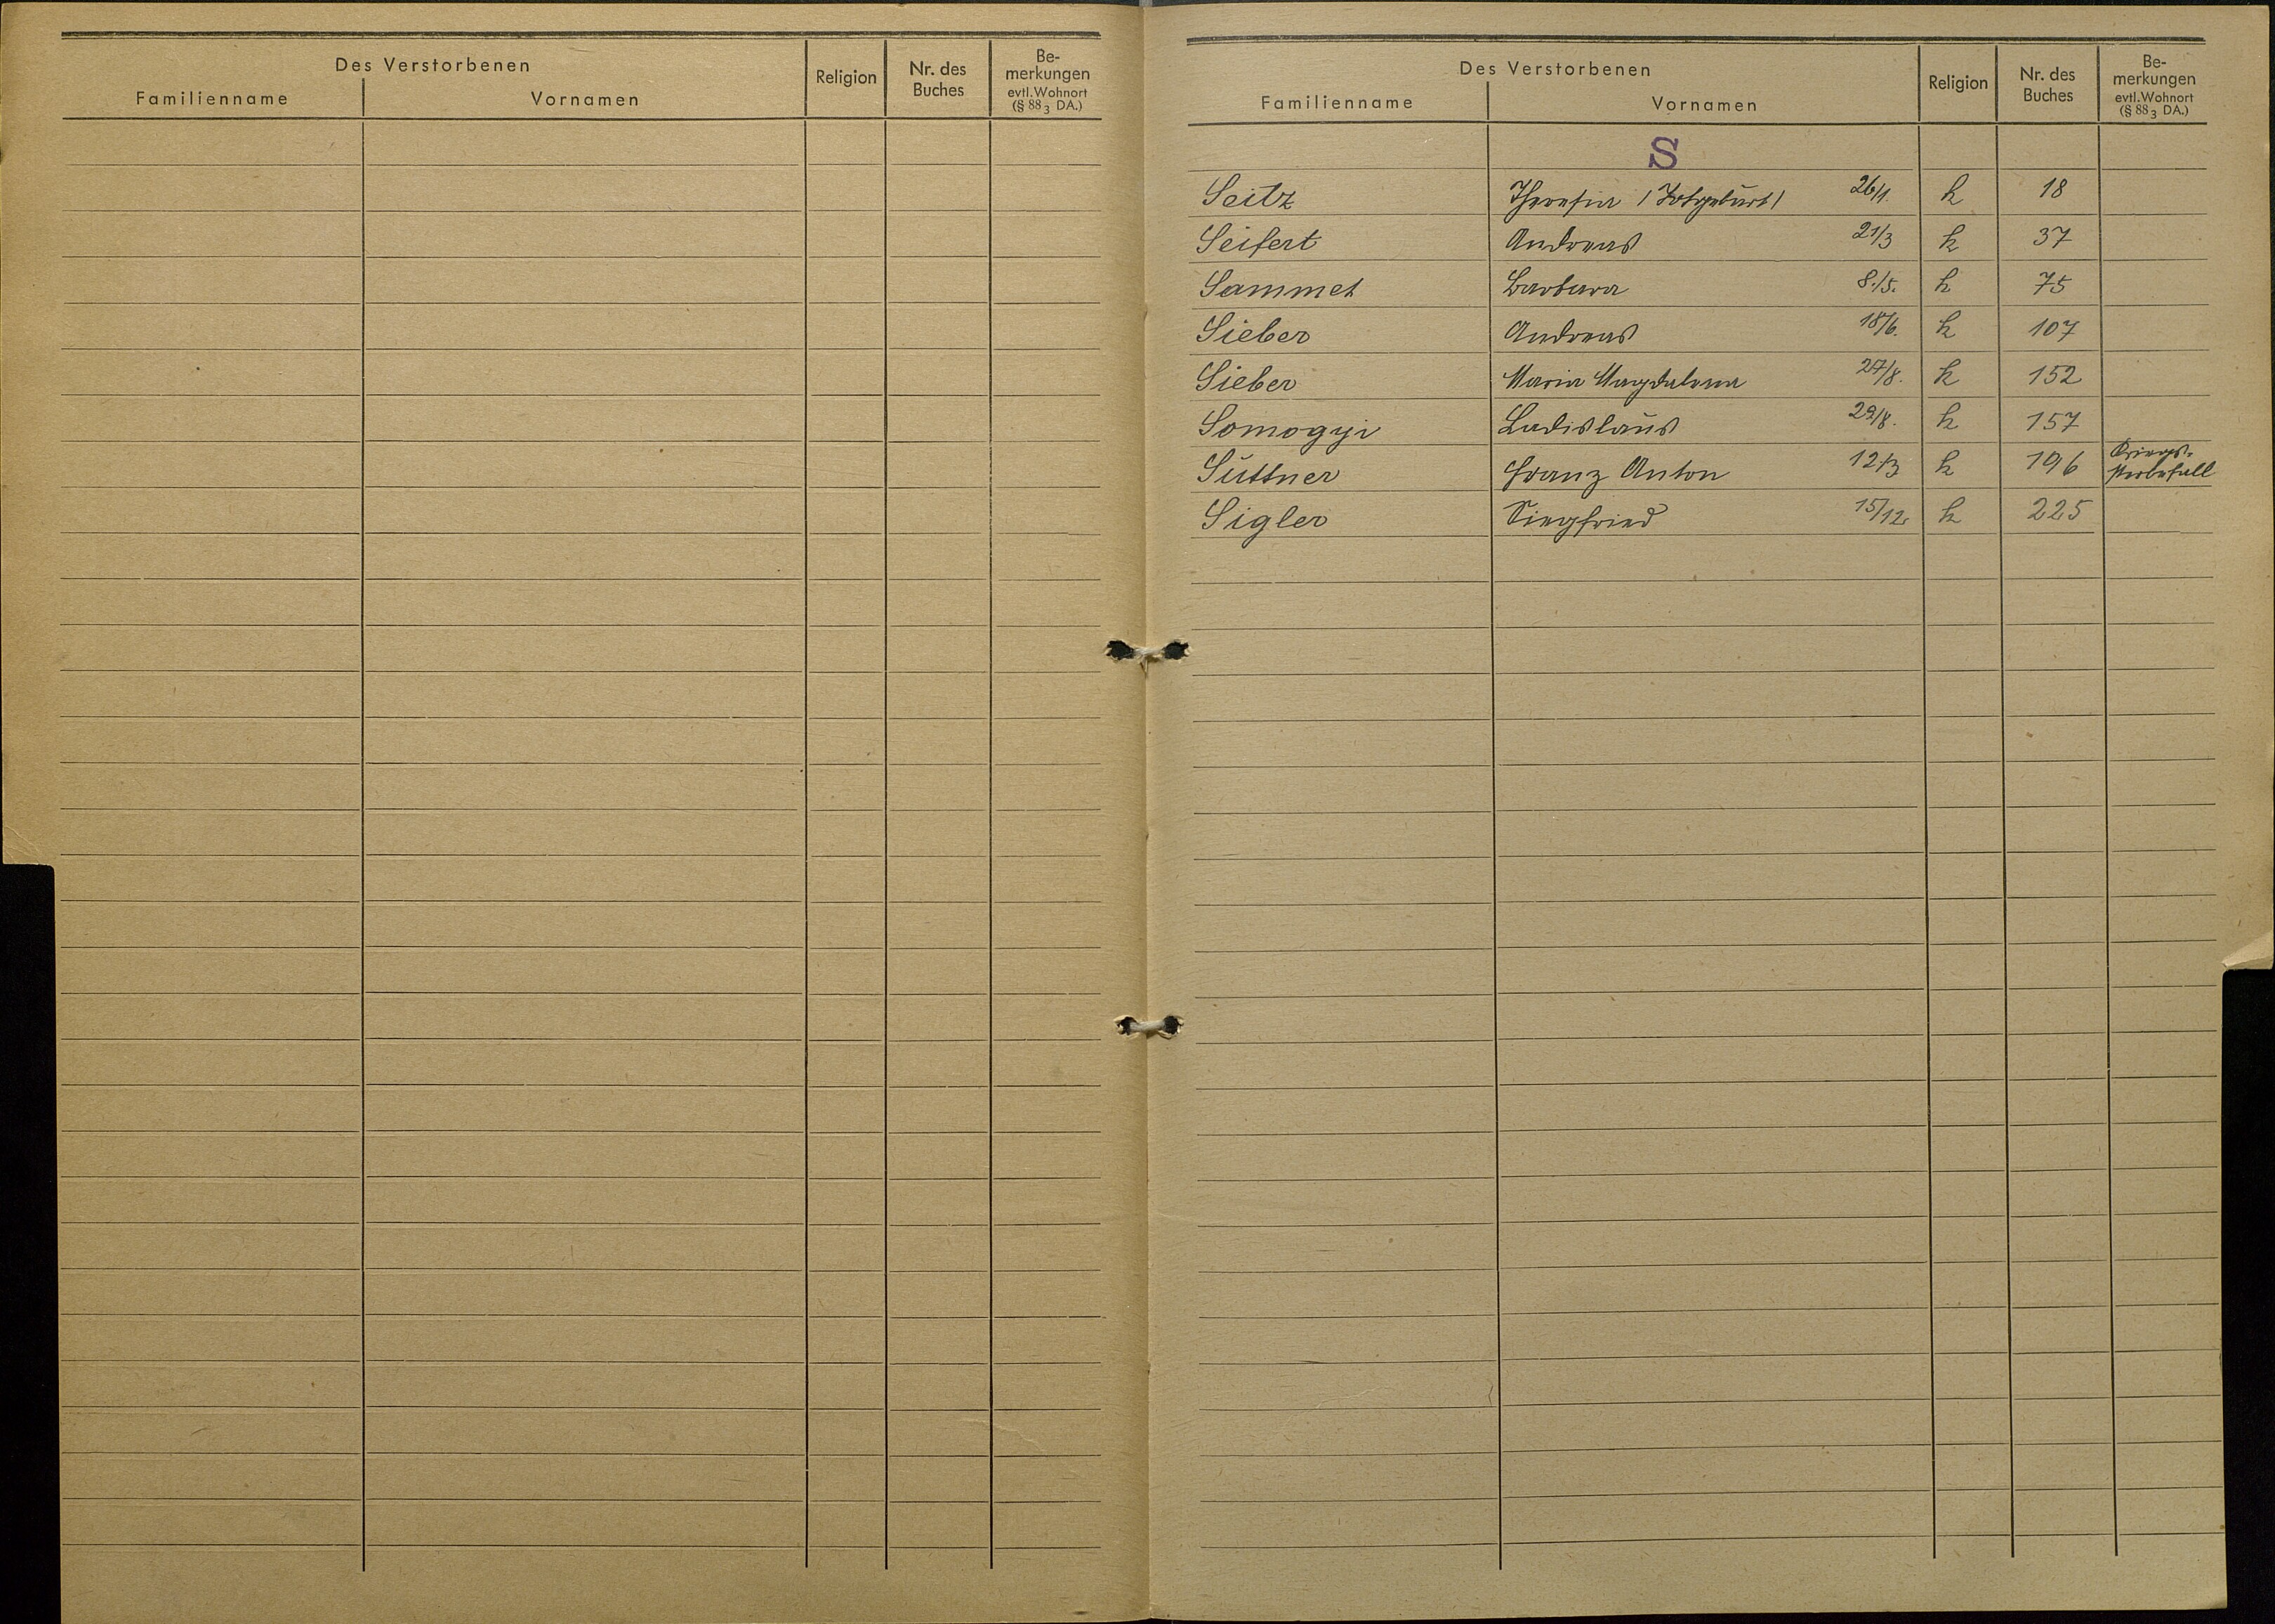 Des Verstorbenen
Familienname Vornamen Religion Nr. des Buches Be-merkungen evtl. Wohnort (§ 88 3 DA.)
Des Verstorbenen
Familienname Vornamen Religion Nr. des Buches Be-merkungen evtl. Wohnort (§ 88 3 DA.)
S
Seitz Theresia /Totgeburt/ 26/1. k 18
Seifert Andreas 21/3 k 37
Sammet Barbara 8./5. k 75
Sieber Andreas 18/6. k 107
Sieber Maria Magdalena 27/8. k 152
Somogyi Ladislaus 29/8. k 157
Süttner Franz Anton 12/3 k 196 Kriegs-Sterbefall
Sigler Siegfried 15/12. k 225